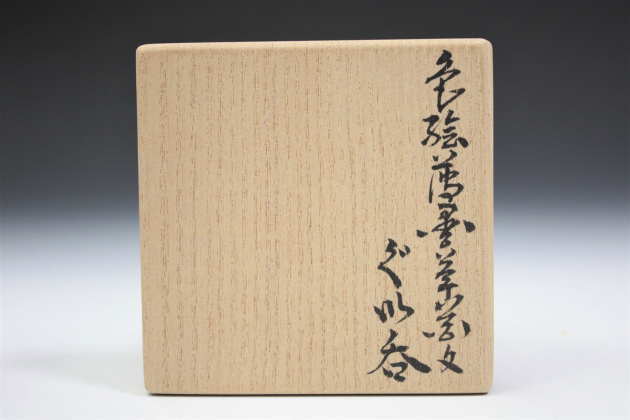 色絵薄墨草花文
ぐい呑